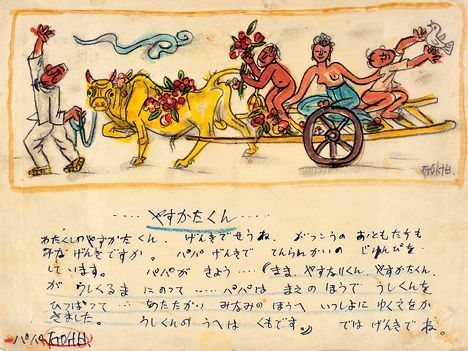 ‥‥やすかたくん‥‥
わたくしのやすかたくん、 げんきでせうね、 がっこうの おともだちも
みな げんきですか。 パパ げんきで てんらんかいの じゅんびを
しています。 パパが きょう‥‥『まま、やすなりくん、やすかたくん、
が うしくるま にのって ‥‥パパは まえのほうで うしくんを
ひっぱって‥‥あたたかい みなみのほうへ いっしょに ゆくえをか
きました。 うしくんの うへは くもです。』 では げんきで ね。
パパ